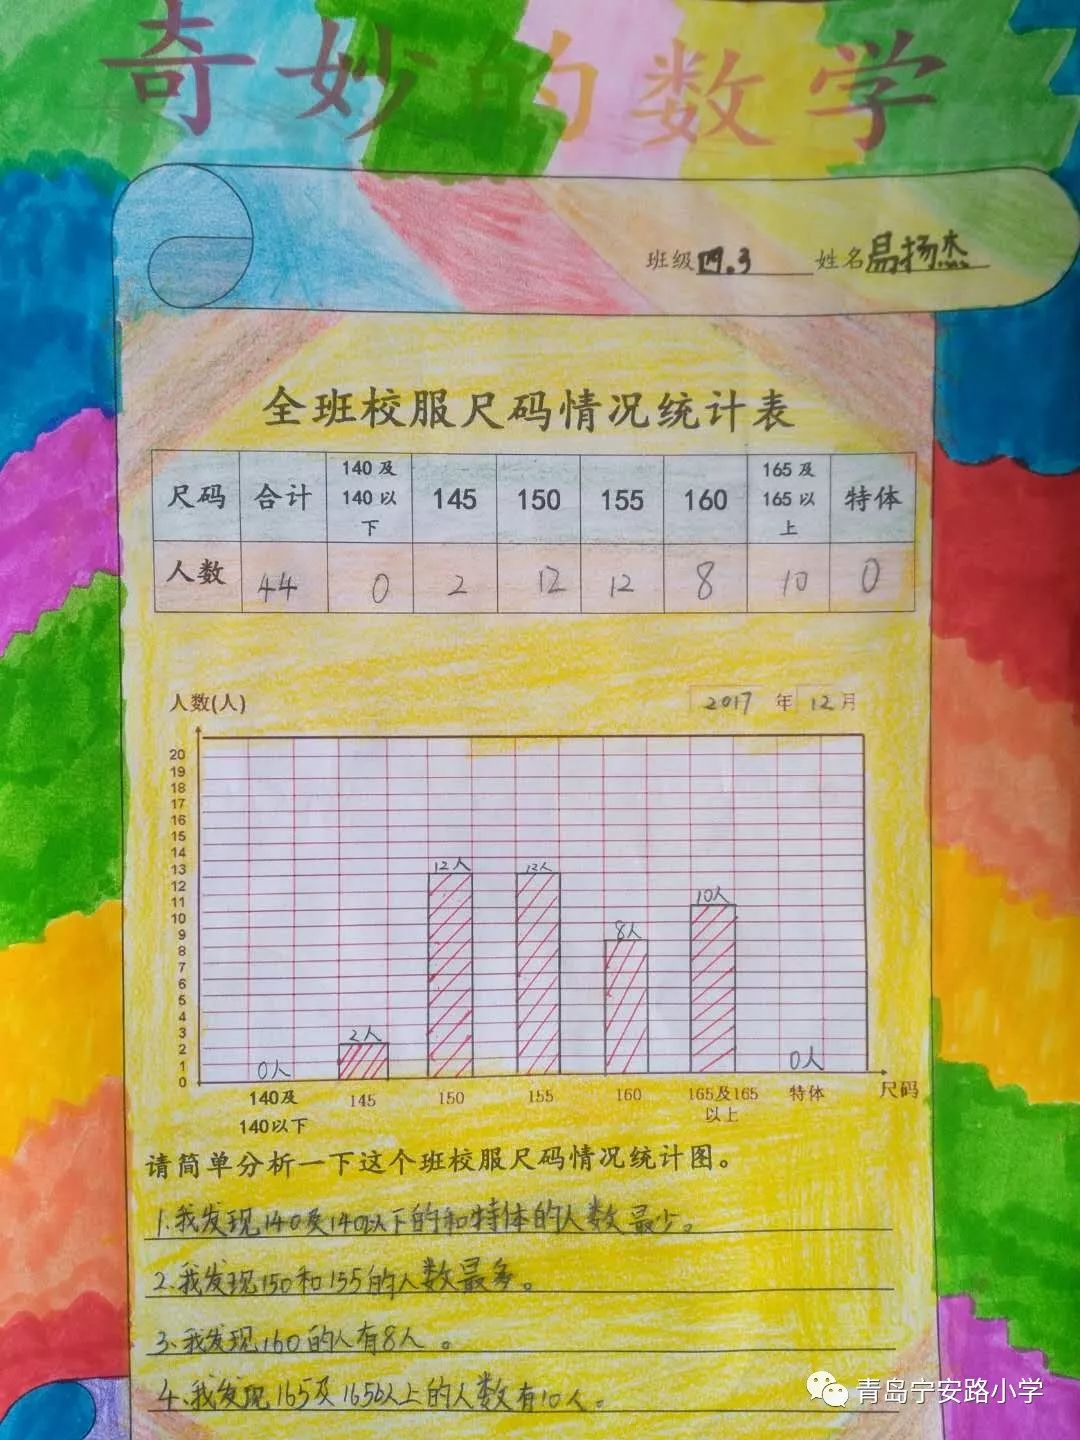 奇妙的数学
班级四.3 姓名易扬杰
全班校服尺码情况统计表
尺码 合计 140及140以下 145 150 155 160 165及165以上 特体
人数 44 0 2 12 12 8 10 0
人数(人) 2017年12月
20
19
18
17
16
15
14
13
12
11
10
9
8
7
6
5
4
3
2
1
0
0人 2人 12人 12人 8人 10人 0人
140及140以下 145 150 155 160 165及165以上 特体 尺码
请简单分析一下这个班校服尺码情况统计图。
1.我发现140及140以下的和特体的人数最少。
2.我发现150和155的人数最多。
3.我发现160的人有8人。
4.我发现165及165以上的人数有10人。
青岛宁安路小学